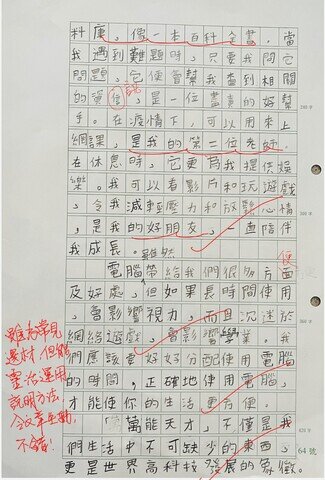 料庫，像一本百科全書。當
我遇到難題時，只要我問它
問題，它便會幫我查到相關
的資信，是一位盡責的好幫
手。在疫情下，可以用來上
網課，是我的第一位老師。
在休息時，它更為我提供娛
樂。我可以看影片和玩遊戲
，令我減輕壓力和放鬆心情
，是我的好朋友，一直陪伴
我成長。雖然
電腦帶給我們很多方面
便
及好處，但如果長時間使用
，會影響視力，而且沉迷於
網絡遊戲，會影響學業。我
們應該要好好分配使用電腦
的時間，正確地使用電腦，
才能使你的生活更方便。
「萬能天才」不僅是我
們生活中不可缺少的東西，
更是世界高科技發展的象徵。
雖為常見
題材，但能
靈活運用
說明方法，
令文章生動，
不錯！
240 號
300 號
360 號
64 號